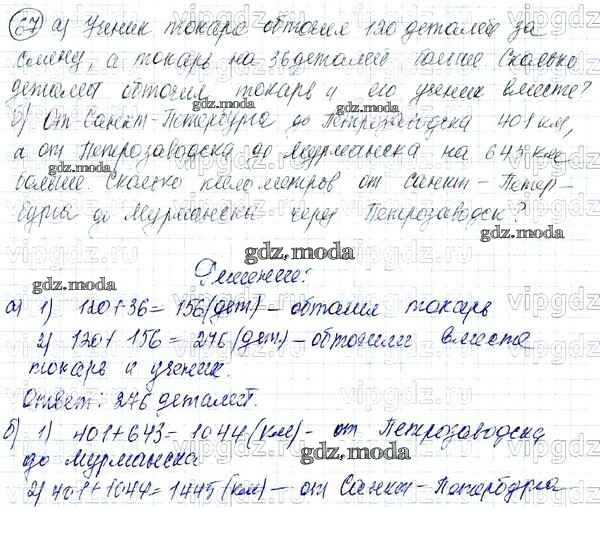 67 а) Ученик токаря обточил 120 деталей за
смену, а токарь на 36 деталей больше Сколько
деталей обточил токарь и его ученик вместе?
б) От Санкт-Петербурга до Петрозаводска 401 км,
а от Петрозаводска до Мурманска на 643 км
больше Сколько километров от Санкт-Петер-
бурга до Мурманска через Петрозаводск?
Решение:
а) 1) 120+36= 156 (дет) - обточил токарь
2) 120+ 156= 276 (дет) - обточили вместе
токарь и ученик.
Ответ: 276 деталей.
б) 1) 401+643= 1044 (км) - от Петрозаводска
до Мурманска
2) 401+1044= 1445 (км) - от Санкт-Петербурга
gdz.moda
vipgdz.ru